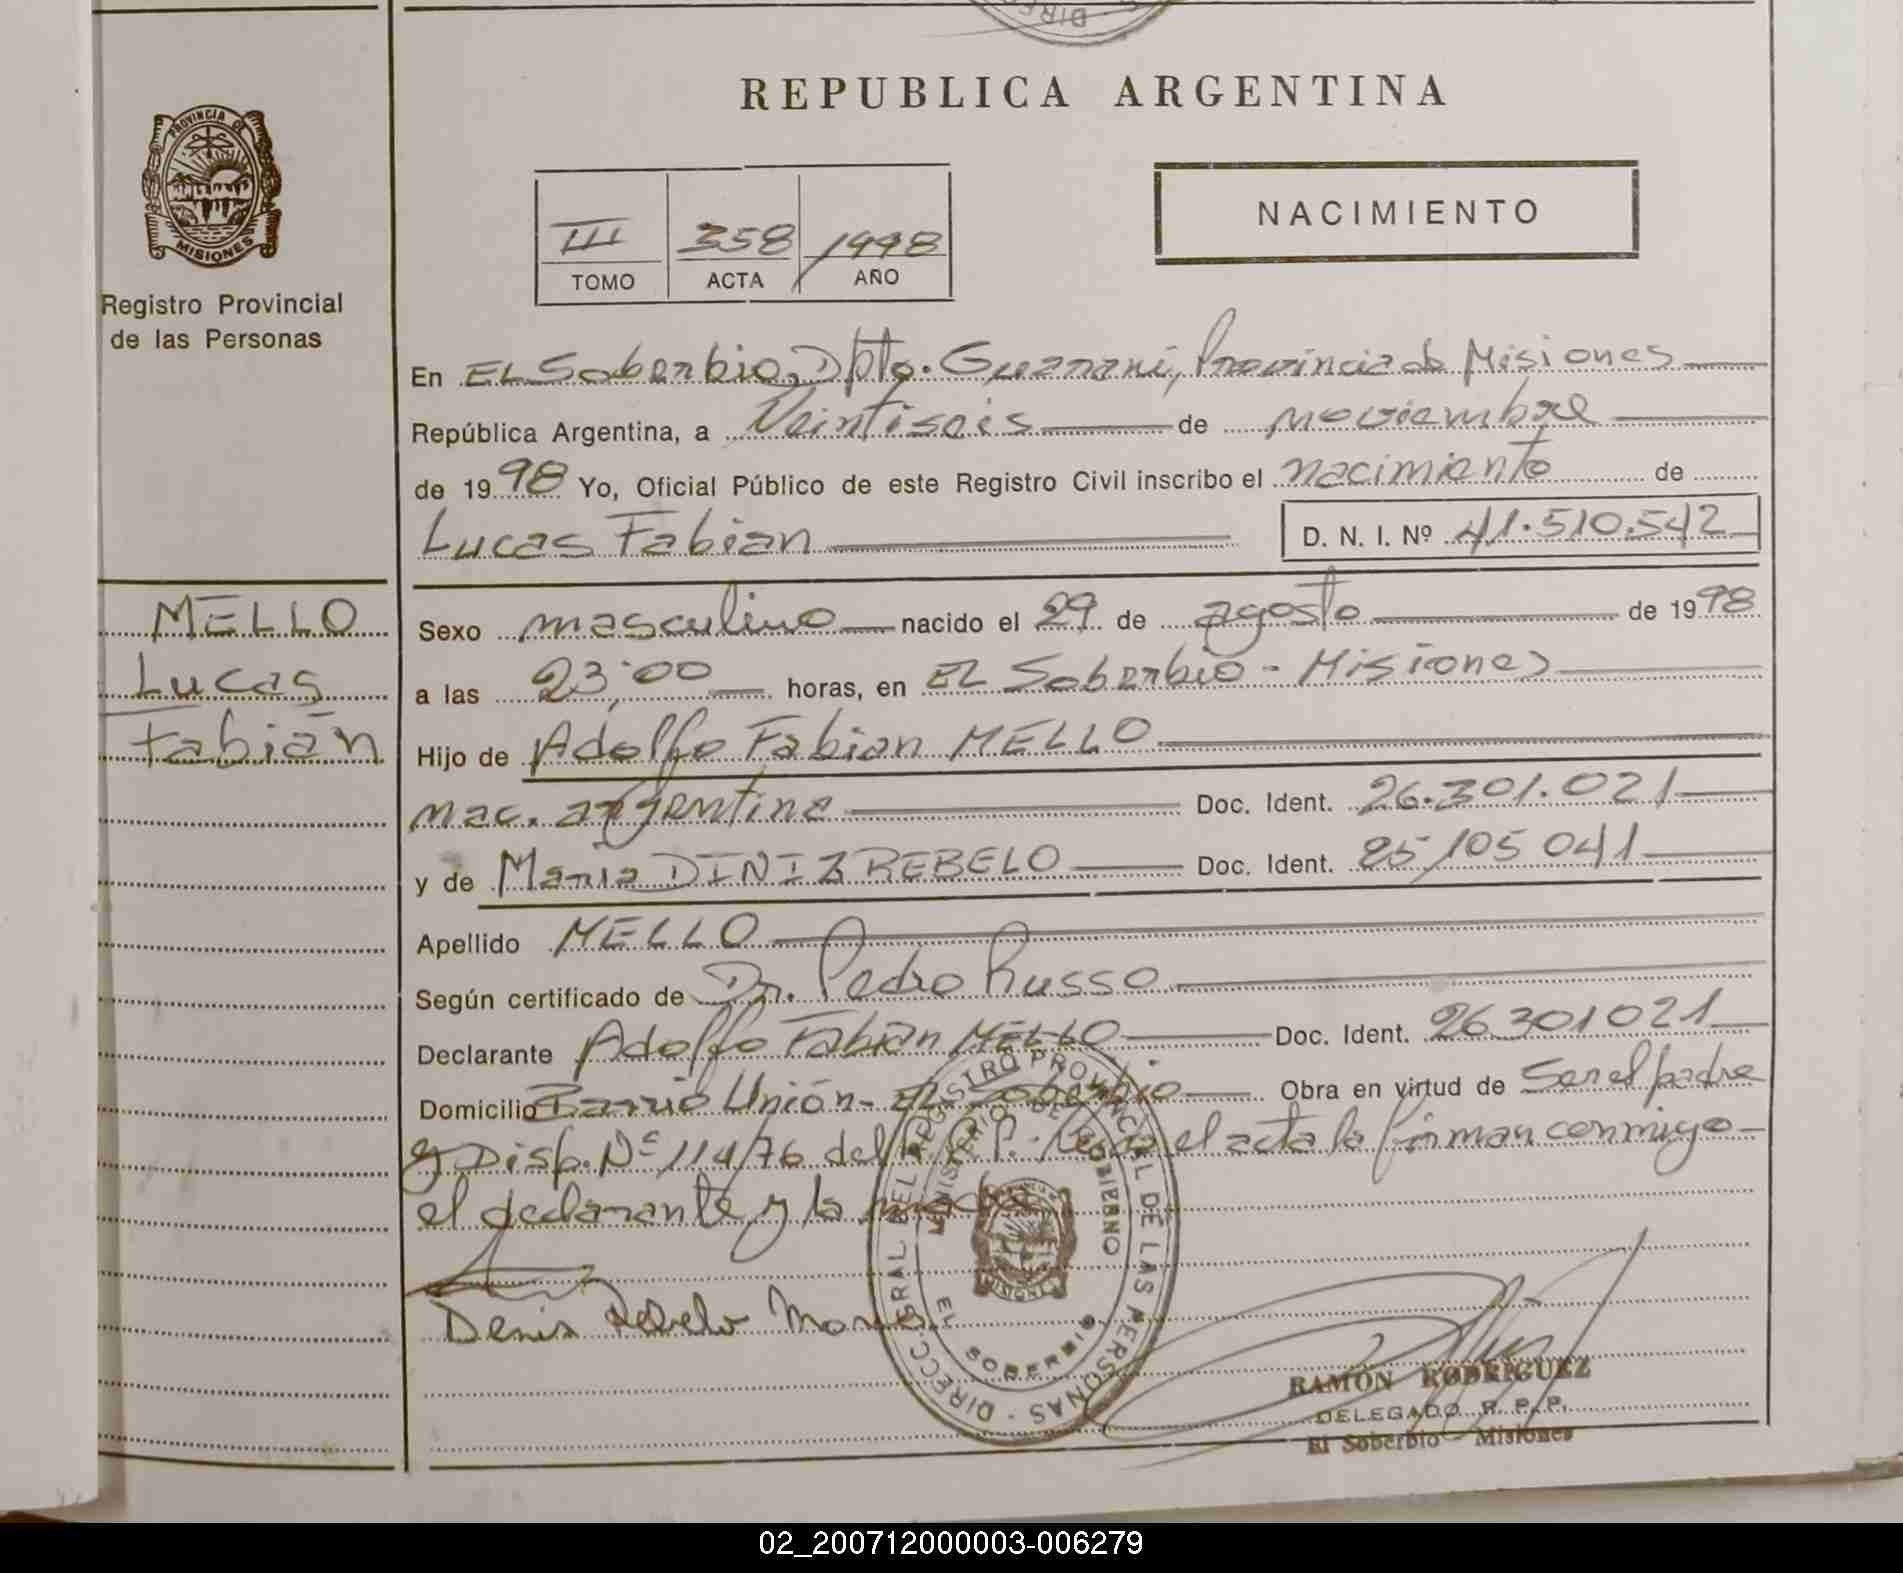 REPUBLICA ARGENTINA
PROVINCIA DE
MISIONES
Registro Provincial
de las Personas
III 358 1998
TOMO ACTA AÑO
NACIMIENTO
En EL Soberbio, Dpto. Guarani, Provincia de Misiones
República Argentina, a Veintiseis de noviembre
de 1998 Yo, Oficial Público de este Registro Civil inscribo el nacimiento de
Lucas Fabian D. N. I. Nº 41.510.542
MELLO
Lucas
Fabián
Sexo masculino nacido el 29 de agosto de 1998
a las 23:00 horas, en EL Soberbio - Misiones
Hijo de Adolfo Fabian MELLO
nac. argentina Doc. Ident. 26.301.021
y de Maria DINIZ REBELO Doc. Ident. 25/105 041
Apellido MELLO
Según certificado de Dr. Pedro Russo
Declarante Adolfo Fabián MELLO Doc. Ident. 26301021
Domicilio Barrio Unión - EL Soberbio Obra en virtud de Ser el padre
y Disp. Nº 114/76 del R.P.P. Leida el acta la firman conmigo
el declarante y la madre
Deniz Rebelo
DIRECC GRAL DEL REGISTRO PROVINCIAL DE LAS PERSONAS
MINISTERIO DE GOBIERNO
EL SOBERBIO
RAMÓN RODRIGUEZ
DELEGADO R. P. P.
El Soberbio - Misiones
02_200712000003-006279